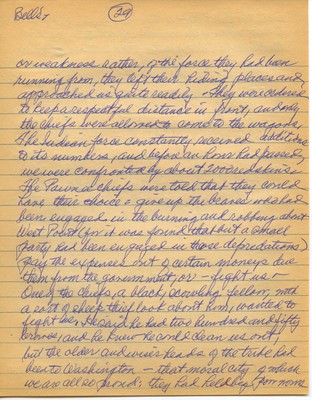 Bells,
29
or weakness rather, of the force they had been
running from, they left their hiding places and
approached us quite readily. They were ordered
to keep a respectful distance in front, and only
the chiefs were allowed to come to the wagons.
The indian force constantly received additions
to its numbers, and before an hour had passed,
we were confronted by about 2000 redskins.
The Pawnee chiefs were told that they could
have their choice - give up the braves who had
been engaged in the burning and robbing about
West Point (for it was found that but a small
party had been engaged in those depredations)
pay the expenses out of certain moneys due
them from the government, or - fight us -
One of the chiefs, a black, scowling fellow, with
a sort of sheep thief look about him, wanted to
fight us. He said he had two hundred and fifty
braves, and he knew he could clean us out,
but the older and wiser heads of the tribe had
been to Washington - that moral city of which
we are all so proud; they had held big pow wows